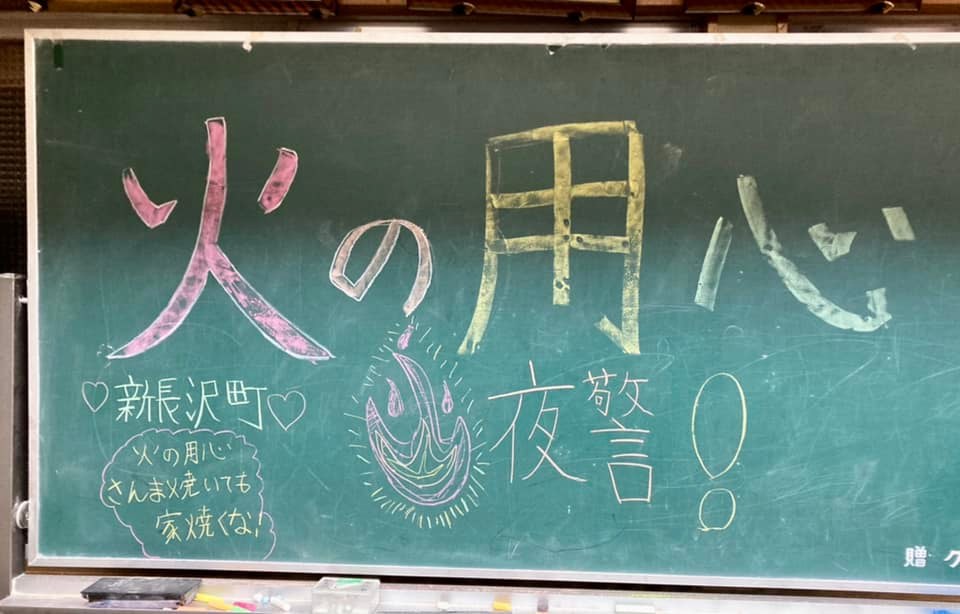 火の用心
♡新長沢町♡
夜警!
火の用心
さんま焼いても
家焼くな!
贈